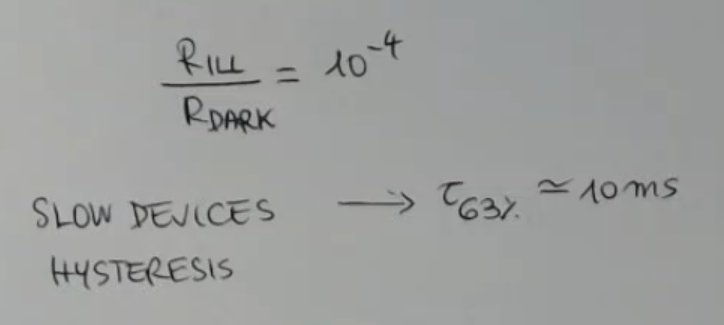 R_ILL / R_DARK = 10^-4
SLOW DEVICES → τ_63% ≃ 10 ms
HYSTERESIS